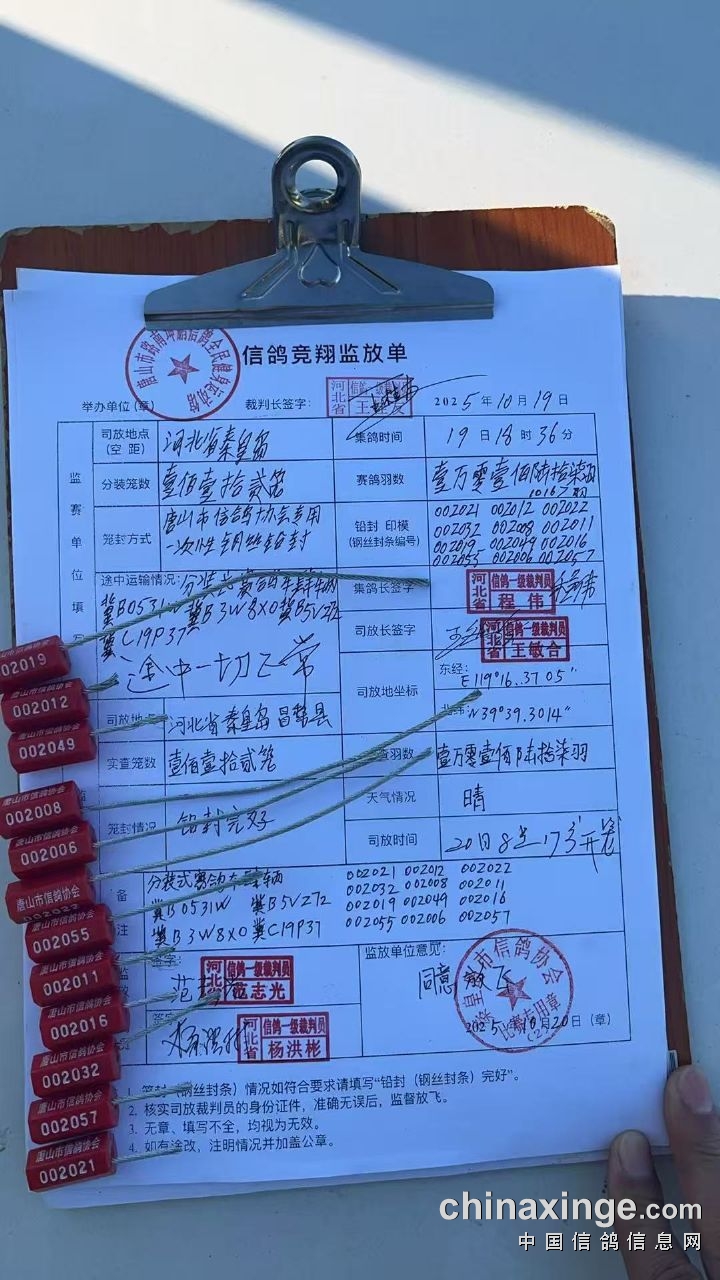 信鸽竞翔监放单
唐山市路南坤鹏信鸽全民健身运动馆
举办单位(章)
裁判长签字:
河北省 信鸽一级裁判员
2025年10月19日
监赛单位填写
司放地点(空 距)
河北省秦皇岛
集鸽时间
19日18时36分
分装笼数
壹佰壹拾贰笼
赛鸽羽数
壹万零壹佰陆拾柒羽
10167羽
笼封方式
唐山市信鸽协会专用
一次性钢丝铅封
铅封 印模
(钢丝封条编号)
002021 002012 002022
002032 002008 002011
002019 002049 002016
002055 002006 002057
途中运输情况:
分装式赛鸽车辆
冀B0531W 冀B3W8X0 冀B5V272
冀C19P37
途中一切正常
集鸽长签字
河北省 信鸽一级裁判员 程伟
司放长签字
河北省 信鸽一级裁判员 王敏合
司放地坐标
东经:
E119°16.3705"
北纬:
N39°39.3014"
司放地点
河北省秦皇岛昌黎县
实查笼数
壹佰壹拾贰笼
查羽数
壹万零壹佰陆拾柒羽
笼封情况
铅封完好
天气情况
晴
司放时间
20日8点17分开笼
备注
分装式赛鸽车辆
冀B0531W 冀B5V272
冀B3W8X0 冀C19P37
002021 002012 002022
002032 002008 002011
002019 002049 002016
002055 002006 002057
签字:
河北省 信鸽一级裁判员 范志光
杨洪彬
河北省 信鸽一级裁判员 杨洪彬
监放单位意见:
同意放飞
皇岛市信鸽协会
比赛专用章
2025年10月20日(章)
1. 笼封(钢丝封条)情况如符合要求请填写“铅封(钢丝封条)完好”。
2. 核实司放裁判员的身份证件,准确无误后,监督放飞。
3. 无章、填写不全,均视为无效。
4. 如有涂改,注明情况并加盖公章。
002019
唐山市信鸽协会
002012
002049
唐山市信鸽协会
002008
唐山市信鸽协会
002006
唐山市信鸽协会
唐山市信鸽协会
002055
唐山市信鸽协会
002011
唐山市信鸽协会
002016
唐山市信鸽协会
002032
唐山市信鸽协会
002057
唐山市信鸽协会
002021
chinaxinge.com
中国信鸽信息网